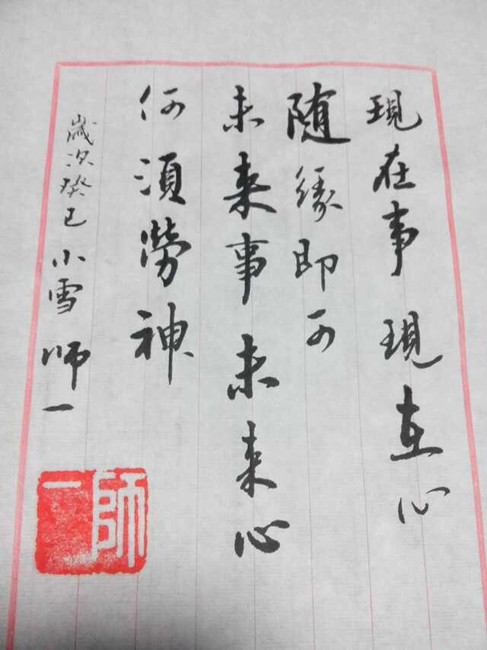 現在事現在心
随緣即可
未来事未来心
何須勞神
歲次癸巳小雪 师一
師一